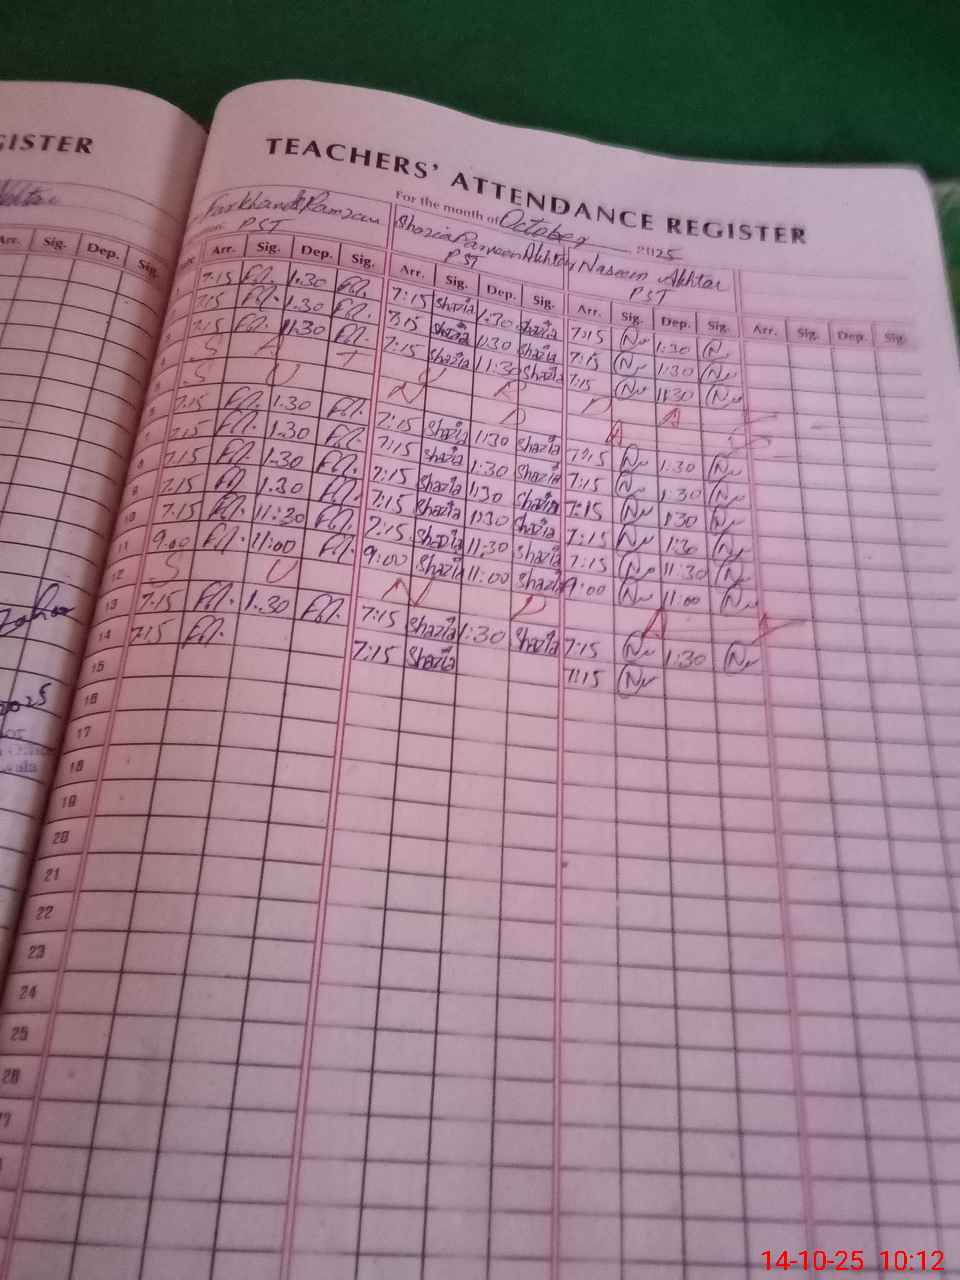 GISTER
TEACHERS' ATTENDANCE REGISTER
For the month of October 2025
Farkhanda Ramzan Shazia Parveen Akhtar Naseem Akhtar
PST PST PST
Arr. Sig. Dep. Sig. Arr. Sig. Dep. Sig. Arr. Sig. Dep. Sig. Arr. Sig. Dep. Sig. Arr. Sig. Dep. Sig.
7:15 1.30 7:15 Shazia 1:30 Shazia 7:15 1:30
7:15 1.30 7:15 Shazia 1:30 Shazia 7:15 1:30
7:15 11.30 7:15 Shazia 11:30 Shazia 7:15 11:30
S A T U R D A Y
S U N D A Y
7.15 1.30 7:15 Shazia 1:30 Shazia 7:15 1:30
7.15 1.30 7:15 Shazia 1:30 Shazia 7:15 1:30
8 7.15 1.30 7:15 Shazia 1:30 Shazia 7:15 1:30
9 7.15 1.30 7:15 Shazia 1:30 Shazia 7:15 1:30
10 7.15 11:30 7:15 Shazia 11:30 Shazia 7:15 11:30
11 9.00 11:00 9:00 Shazia 11:00 Shazia 9:00 11:00
12 S U N D A Y
13 7.15 1.30 7:15 Shazia 1:30 Shazia 7:15 1:30
14 7:15 7:15 Shazia 7:15
15
16
17
18
19
20
21
22
23
24
25
26
2025
14-10-25 10:12